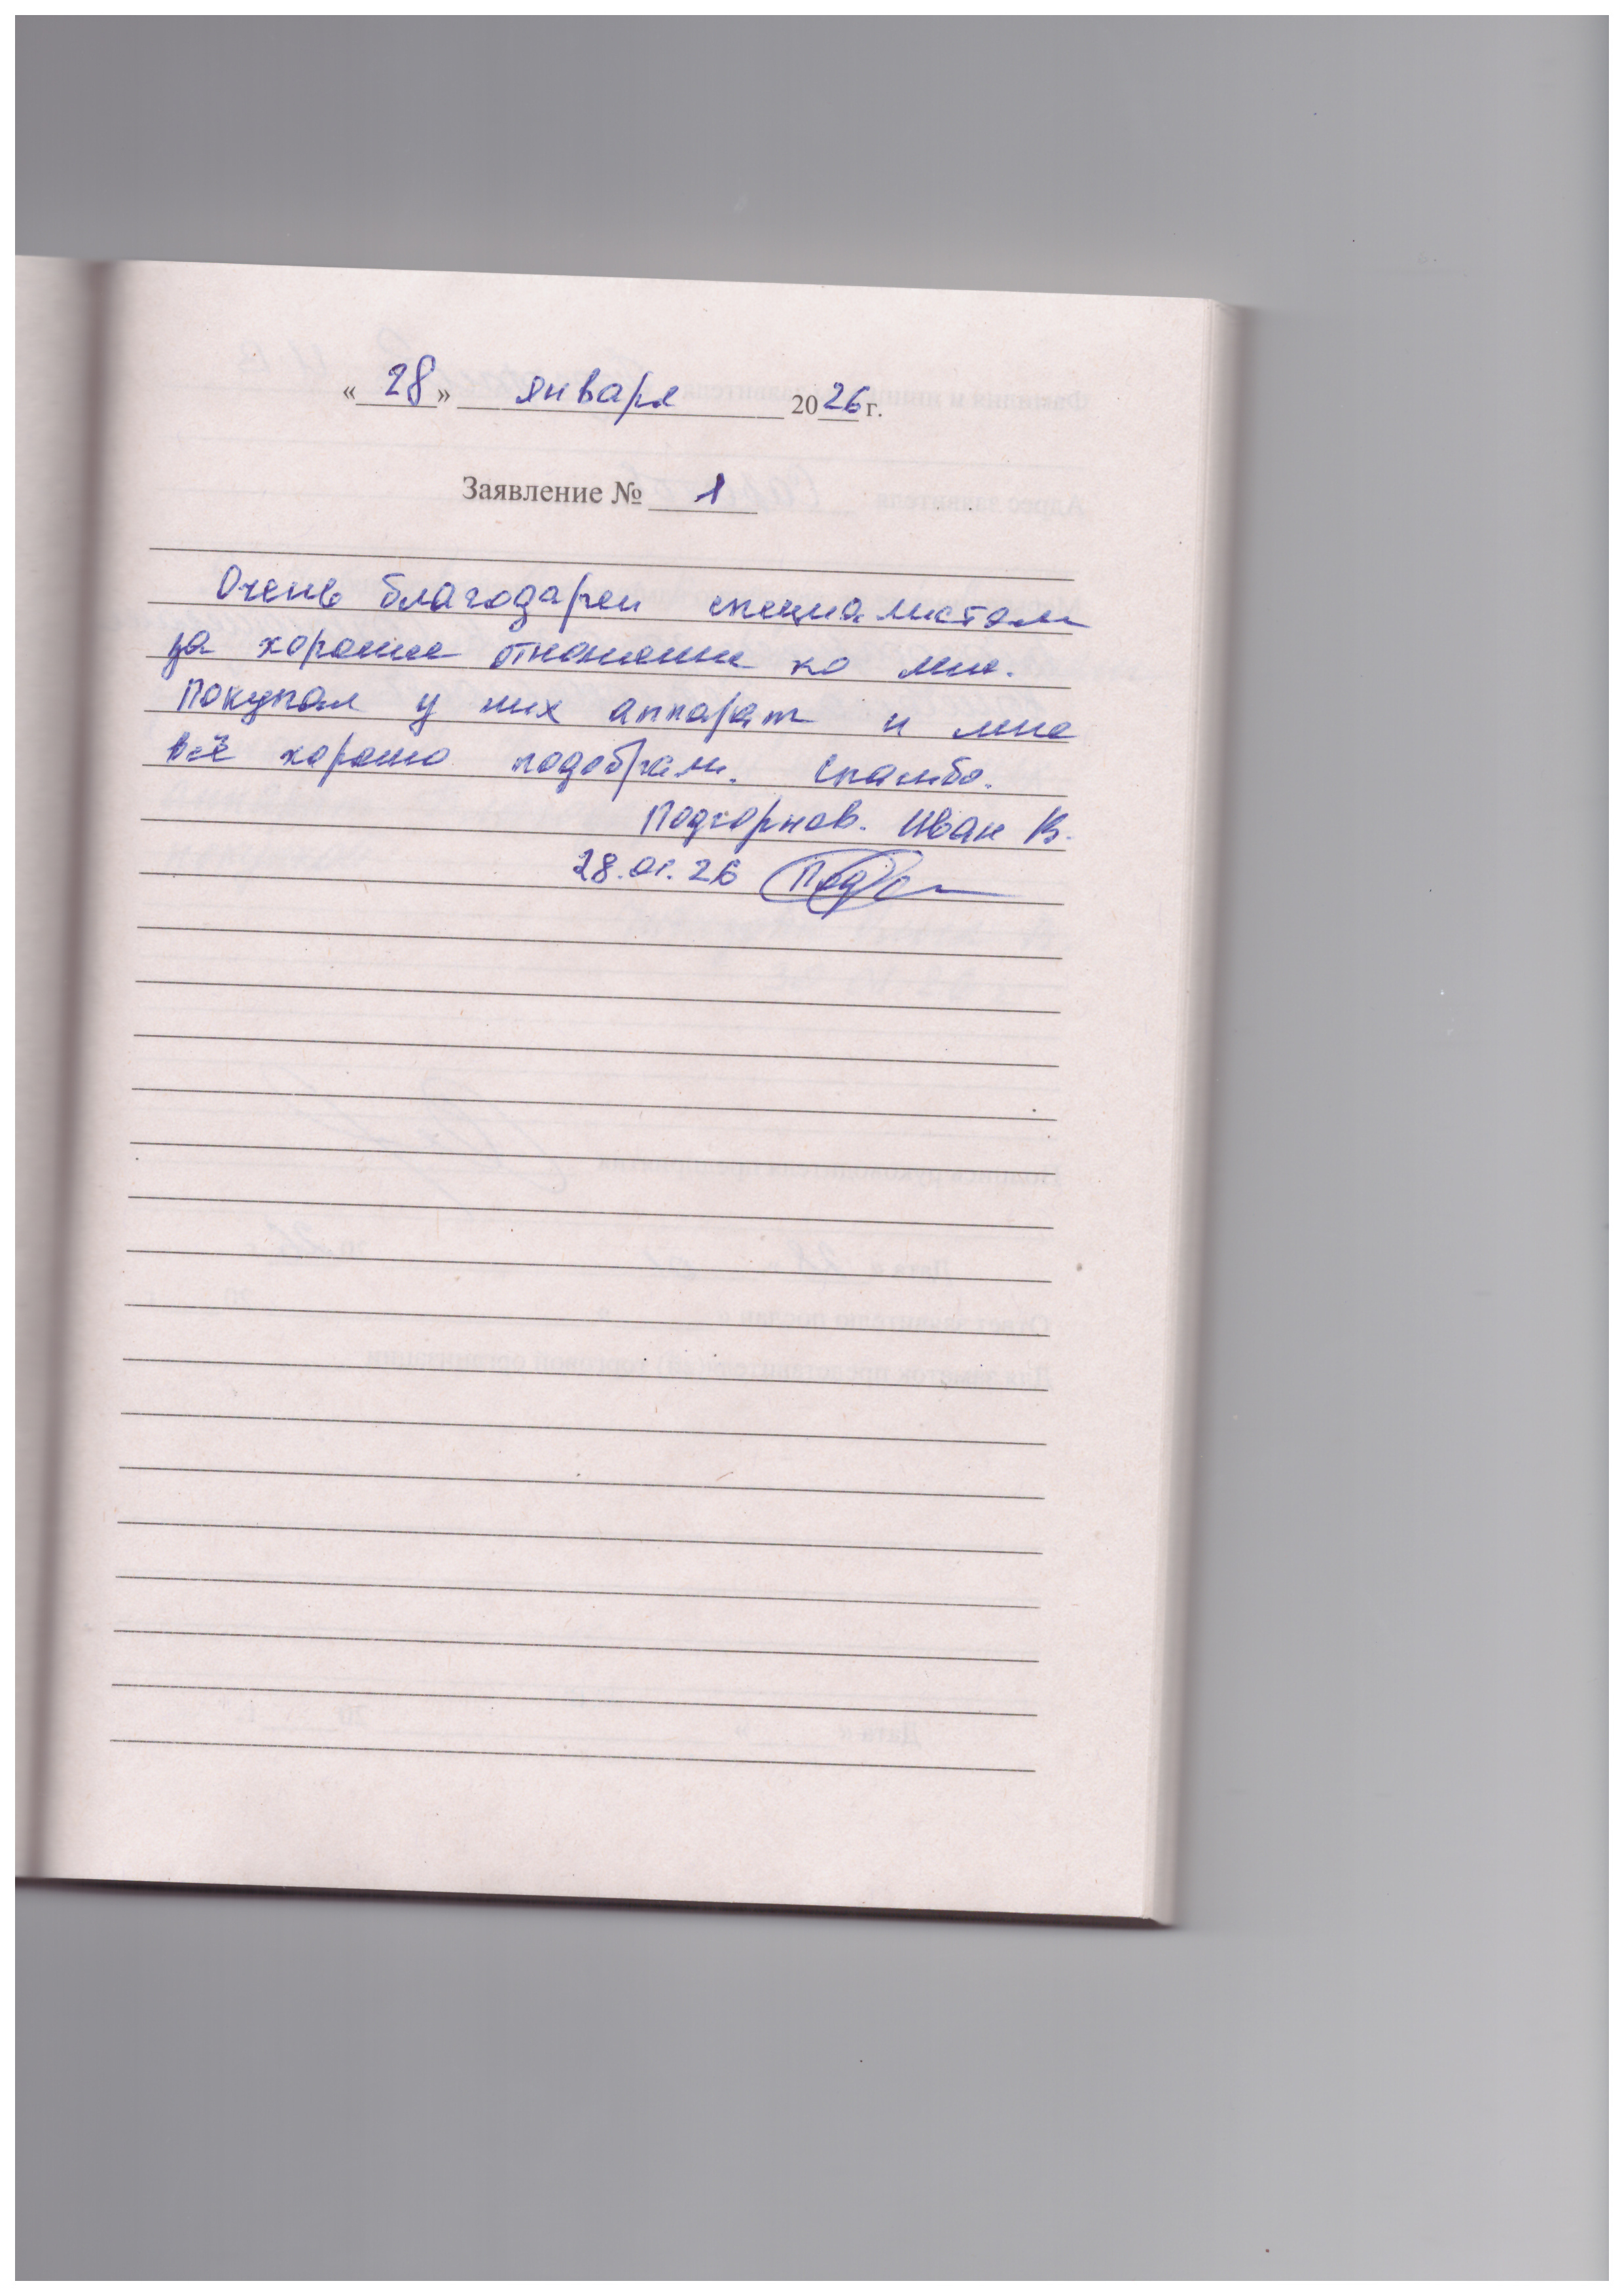 « 28 » января 2026 г.
Заявление № 1
Очень благодарен специалистам
за хорошее отношение ко мне.
Покупал у них аппарат и мне
всё хорошо подобрали. Спасибо.
Подгорнов. Иван В.
28.01.26